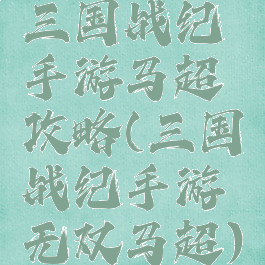 三国战纪
手游马超
攻略(三国
战纪手游
无双马超)